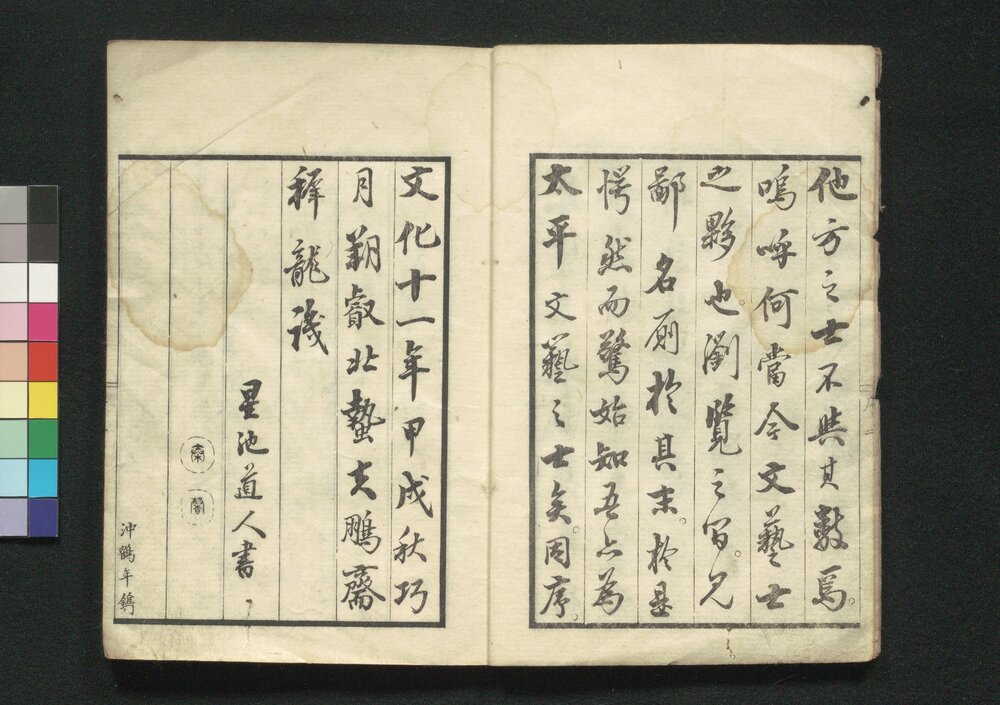 他方之士不與其數焉。
嗚呼何當今文藝士
之夥也。瀏覽之間。見
鄙名厠於其末。於是
愕然而驚始知吾亦為
太平文藝之士矣。因序。
文化十一年甲戌秋巧
月朔叡北蟄夫鵬齋
稺龍識
星池道人書
秦
馨
沖鶴年鐫